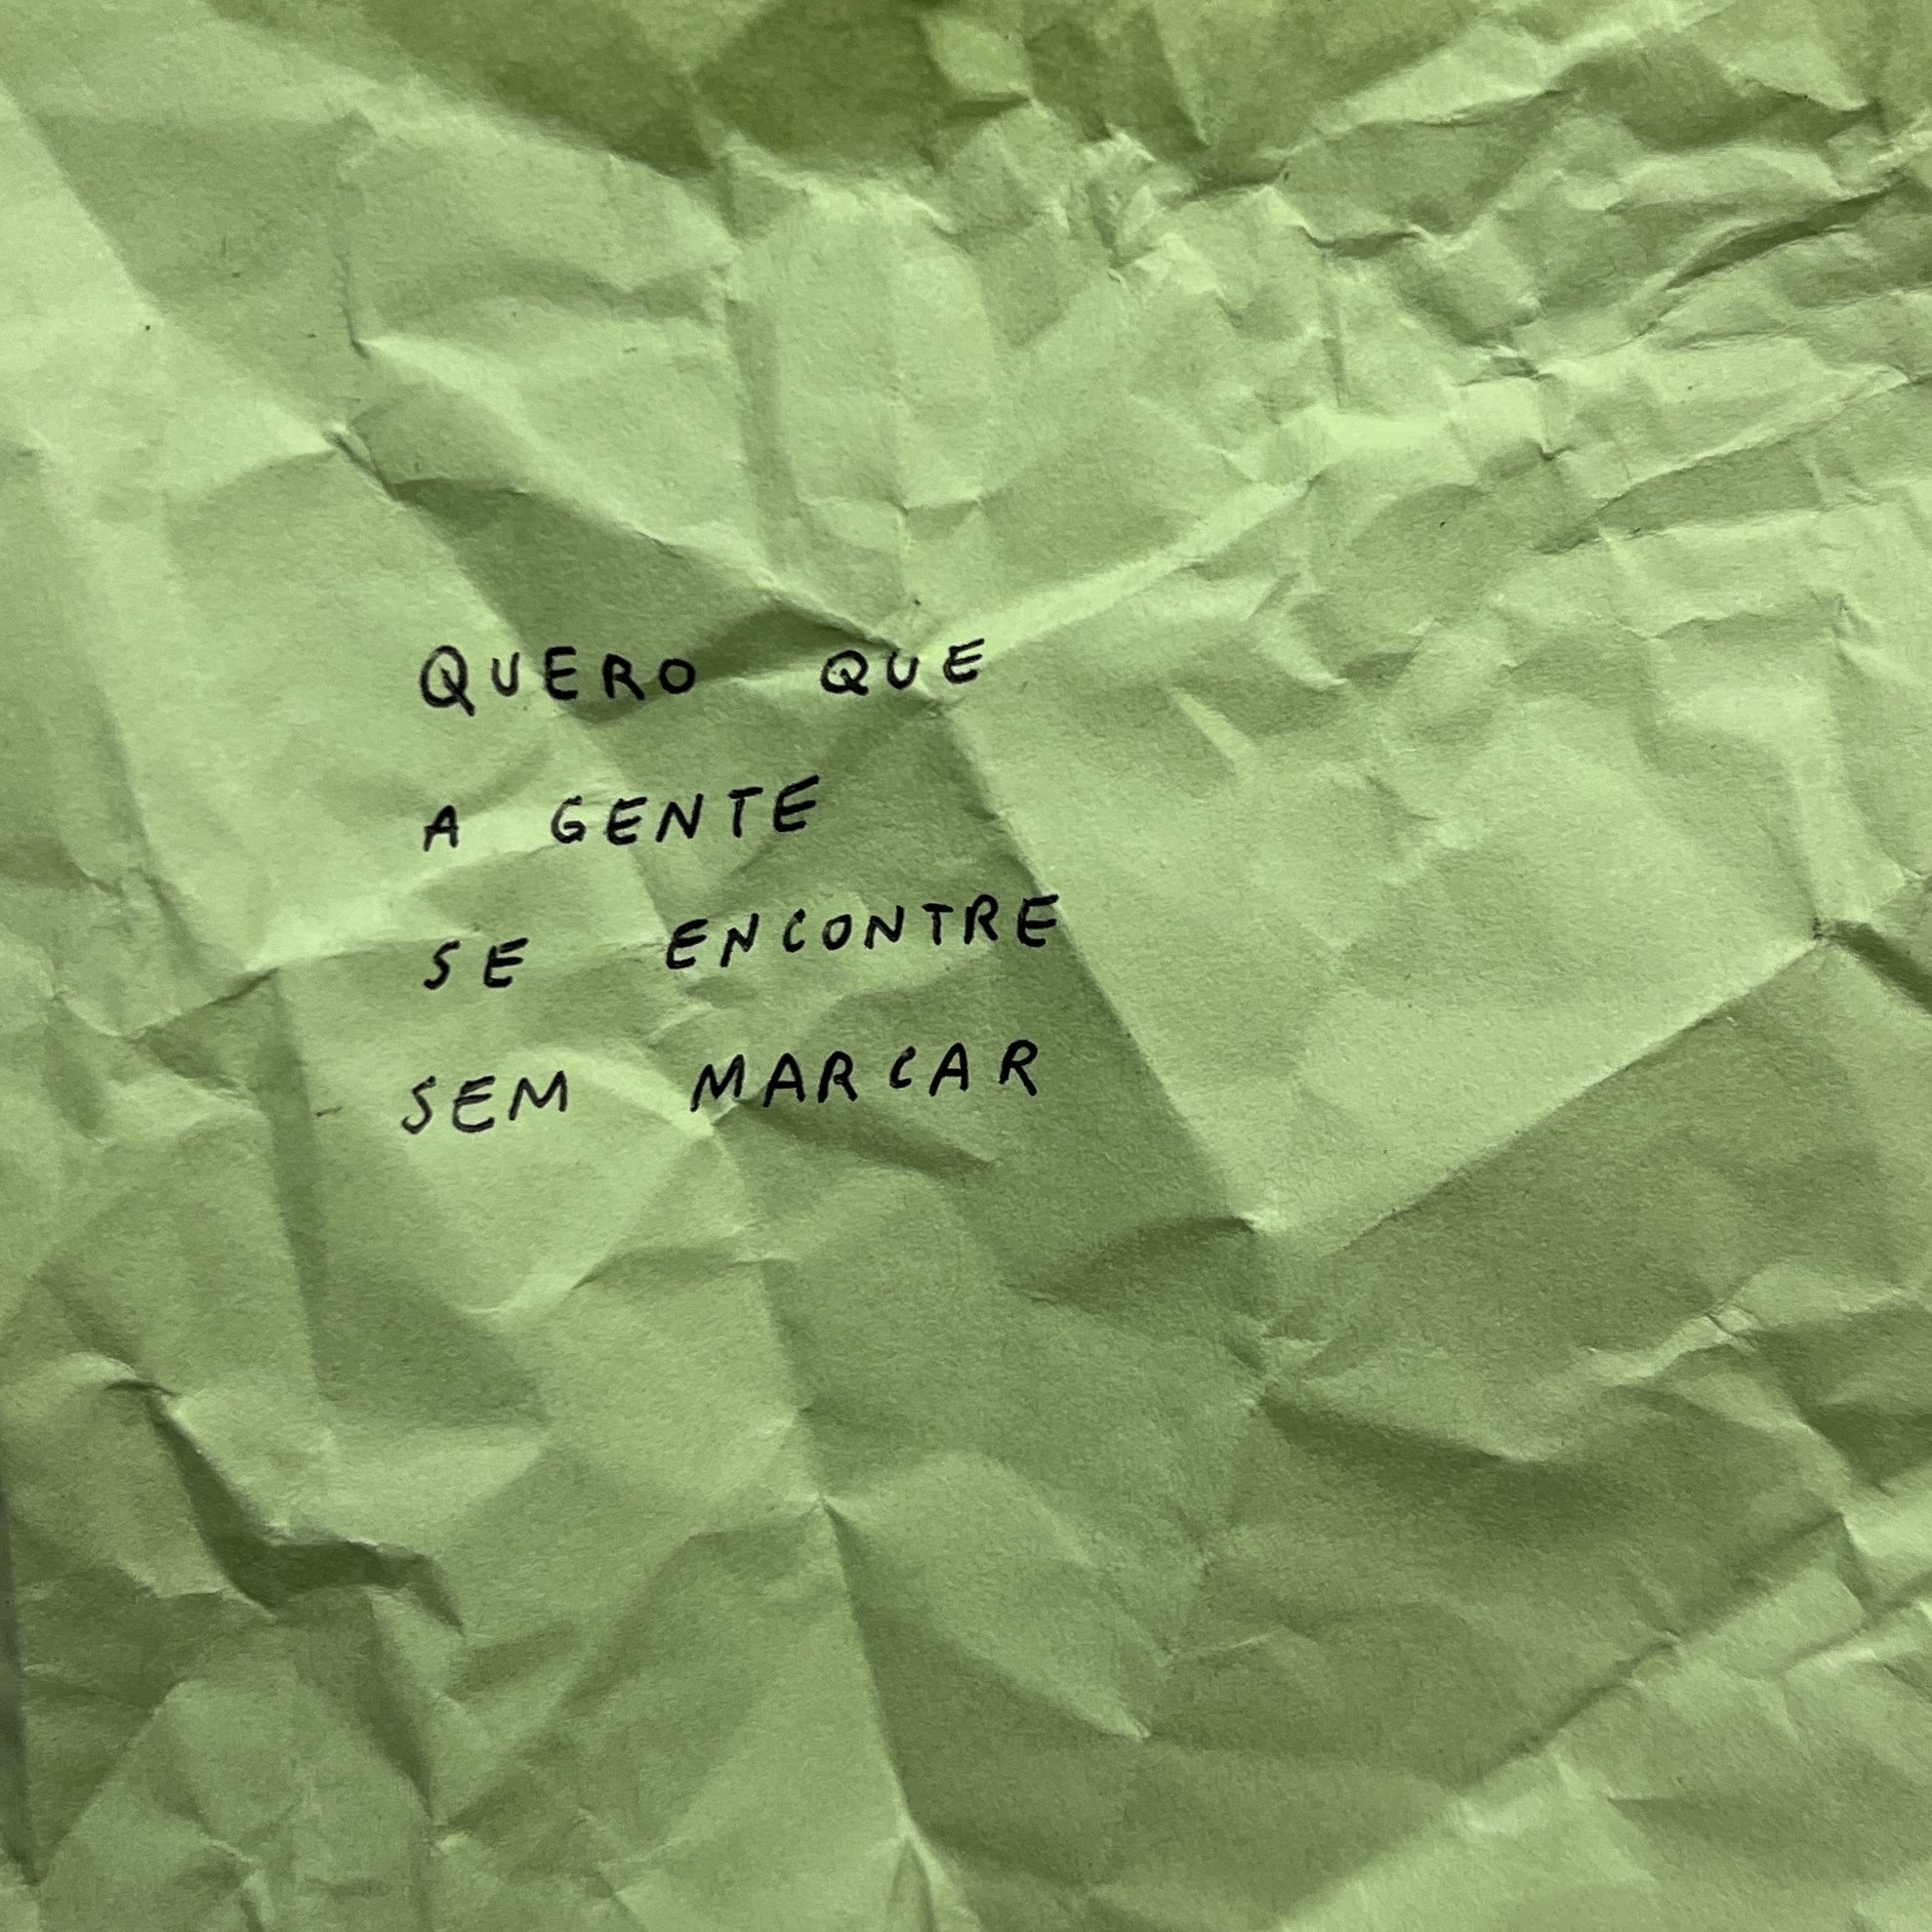 QUERO QUE
A GENTE
SE ENCONTRE
SEM MARCAR